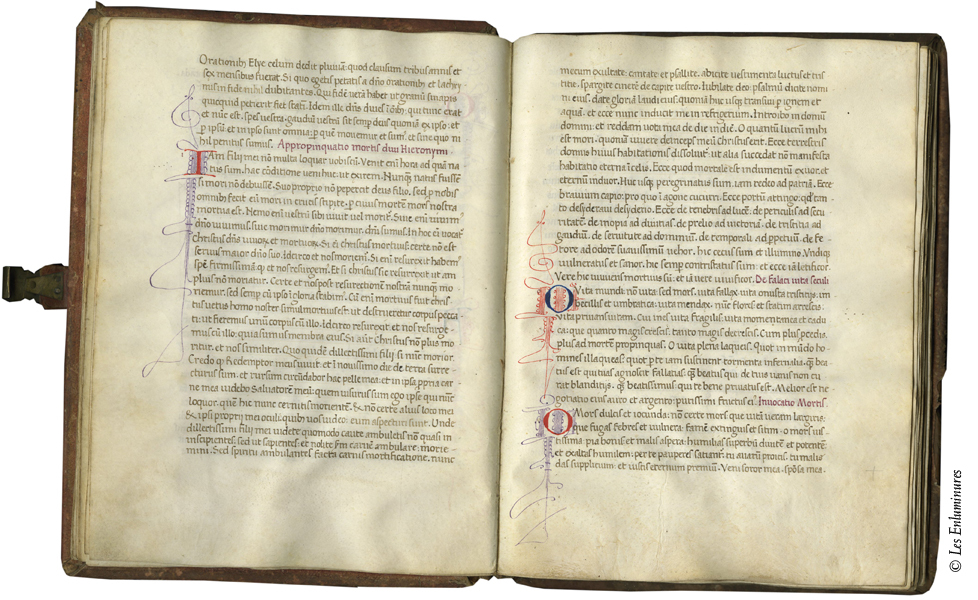 Orationib Elye celum dedit pluuiā: quod clausum tribus annis et
sex mensibus fuerat. Si quo egetis petatis a dño orationib et lachry
mis in fide nihil dubitantes. Qui fidē uerā habet ut granū sinapis
quicquid petierit fiet statī. Idem ille dñs diues ī oīb; qui tunc erat
et nūc est. spes uestra. gaudiū vestrū sit semp deus quoniā ex ipso: et
p ipsū et in ipso sunt omnia: p quē mouemur et sumꝰ. et sine quo ni
hil penitus sumus. Appropinquatio mortis diui Hieronymi
IAm filij mei nō multa loquar uobiscū. Venit eni hora ad quā na
tus sum. hac cōditione ueni huc: ut exirem. Nunq̄ natus fuisse
si mori nō debuissē. Suo proprio nō pepercit deus filio. sed p nobis
omnib fecit eū mori in crucis stipite. p cuius mortē mors nostra
mortua est. Nemo eni vestrū sibi uiuit uel moritꝰ. Siue eni viuimꝰ
dño viuimus. siue morimur dño morimur. dñi sumus. In hoc eni uocat
christus dñs uiuorꝝ et mortuorꝝ. Si ē christus mortuus. certe nō est
seruus maior dño suo. Idcirco et nos moriemꝰ. Si eni resurrexit habemꝰ
spē firmissimā: q et nos resurgemꝰ. Et si christus sic resurrexit ut am
plius nō moriatur. Certe et nos post resurectionē nostrā nunq̄ mo
riemur. sed semp cū ipso ī gloria stabimꝰ. Cū eni mortuus fuit chris
tus uetus homo noster simul mortuus est: ut destrueretur corpus pecca
ti: ut fieremus unū corpus cū illo. Idcirco resurexit: et nos resurge
mus cū illo: quia sumus membra eius. Si aūt Christus nō plus mo
ritur. et nos similiter. Quo quidē dillectissimi filij si nūc morior.
Credo q Redemptor meus uiuit. et ī nouissimo die de terra surre
cturus sum. et rursum circūdabor hac pelle mea: et in ipsa ppria car
ne mea uidebo Saluatorē meū: quem uisurus sum ego ipse qui nūc
loquor. quē hic nunc cernitis morientē. & nō certe alius loco mei
& ipsi proprij mei oculi: quib uos uideo: eum aspecturi sunt. Unde
dillectissimi filij mei videte quomodo caute ambuletis nō quasi in
insipientes. sed ut sapientes. et nolite scdm carnē ambulare: morie
mini. Sed spiritu ambulantes facta carnis mortificatione. nunc
mecum exultate: cantate et psallite. abicite vestimenta luctus et tris
titie. spargite cinerē de capite vestro. Iubilate deo. psalmū dicite nomi
ni eius. date gloriā laudi eius. quoniā huc usq; transiui p ignem et
aquā: et ecce nunc inducit me in refrigerium. Introibo in domū
domini: et reddam uota mea de die indiē. O quantū lucrū mihi
est mori. quoniā uiuere deinceps meū Christus erit. Ecce terrestris
domus huius habitationis dissoluitꝰ: ut alia succedat nō manufacta
habitatio eterna ī celis. Ecce quod mortale est indumentū exuor. et
eternū induor. Huc usq; peregrinatus sum. iam redeo ad patriā. Ecce
brauium capio: pro quo ī agone cucurri. Ecce portū attingo: qd tan
to desyderaui desyderio. Ecce de tenebris ad lucē. de periculis ad secu
ritatē. de inopia ad diuitias. de prelio ad victoriā. de tristitia ad
gaudiū. de seruitute ad dominiū. de temporali ad ppetuū. de fe
tore ad odorē suauissimū uehor. hic cecus sum et illuminor. Vndiq;
uulneratus et sanor. hic semp contristatus sum et ecce iā letificor.
Vere hic uiuens mortuus sum: et iā vere uiuificor. De Falaci vita seculi
O Vita mundi nō vita: sed mors. vita fallax. vita onusta tristitijs. im
becillis et umbratica. vita mendax. nūc flores: et statim arrescis.
Vita priuans uitam. Cui ines vita fragilis. vita momentanea et cadu
ca: que quanto magis crescis: tanto magis decrescis. Cum plus pcedis
plus ad mortē propinquas. O uita plena laqueis. Quot in mūdo ho
mines illaqueas. quot p te iam sustinent tormenta infernalia. q̄ bea
tus est qui tuas agnoscit fallatias. q̄ beatus qui de tuis vanis non cu
rat blanditijs. q̄ beatissimus qui te bene priuatus est. Melior est ne
gotiatio eius auro et argento: purissimi fructus ei. Inuocatio Mortis.
O Mors dulcis et iocunda: nō certe mors que vitā veram largiris:
que fugas febres et vulnera: famē extinguis et sitim. o mors ius
tissima: pia bonis et malis aspera: humilias superbū diuitē et potentē.
et exaltas humilem: per te pauperes satiantꝰ. tu auaris prouis. tu malis
das supplicium. et iustis eternum premiū. Veni soror mea. spōsa mea.
© Les Enluminures